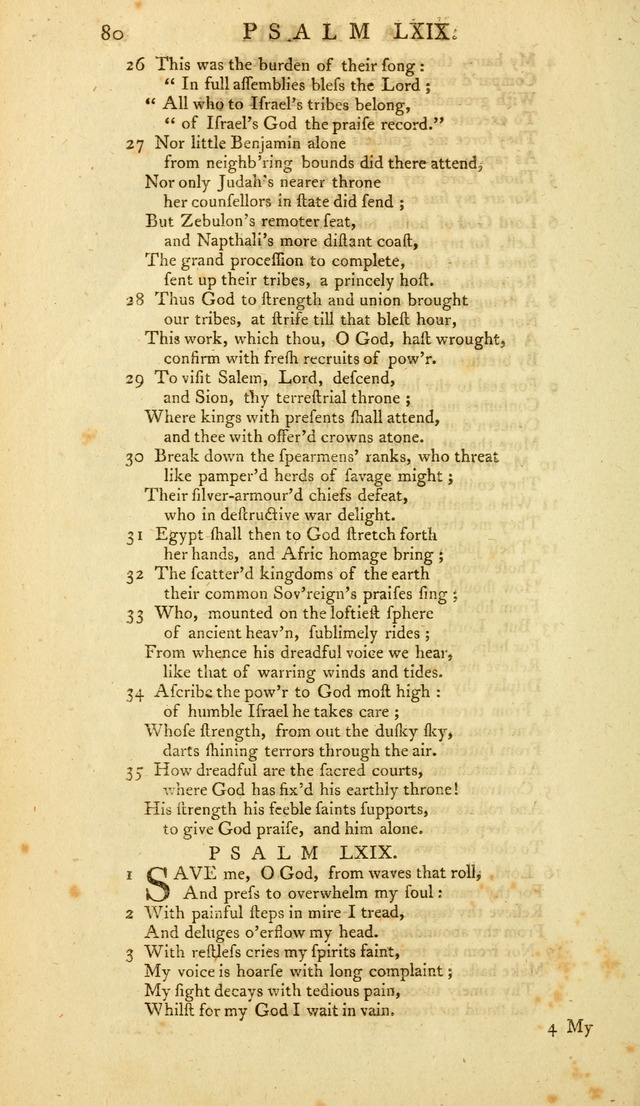 80 PSALM LXIX.
26 This was the burden of their ſong :
“ In full aſſemblies bleſs the Lord ;
“ All who to Iſrael's tribes belong,
“ of Iſrael's God the praiſe record.”
27 Nor little Benjamin alone
from neighb'ring bounds did there attend,
Nor only Judah's nearer throne
her counſellors in ſtate did ſend ;
But Zebulon's remoter ſeat,
and Napthali's more diſtant coaſt,
The grand proceſſion to complete,
ſent up their tribes, a princely hoſt.
28 Thus God to ſtrength and union brought
our tribes, at ſtrife till that bleſt hour,
This work, which thou, O God, haſt wrought,
confirm with freſh recruits of pow'r.
29 To viſit Salem, Lord, deſcend,
and Sion, thy terreſtrial throne ;
Where kings with preſents ſhall attend,
and thee with offer'd crowns atone.
30 Break down the ſpearmens' ranks, who threat
like pamper'd herds of ſavage might ;
Their ſilver-armour'd chiefs defeat,
who in deſtructive war delight.
31 Egypt ſhall then to God ſtretch forth
her hands, and Afric homage bring ;
32 The ſcatter'd kingdoms of the earth
their common Sov'reign's praiſes ſing ;
33 Who, mounted on the loftieſt ſphere
of ancient heav'n, ſublimely rides ;
From whence his dreadful voice we hear,
like that of warring winds and tides.
34 Aſcribe the pow'r to God moſt high :
of humble Iſrael he takes care ;
Whoſe ſtrength, from out the duſky ſky,
darts ſhining terrors through the air.
35 How dreadful are the ſacred courts,
where God has fix'd his earthly throne!
His ſtrength his feeble ſaints ſupports,
to give God praiſe, and him alone.
PSALM LXIX.
1 SAVE me, O God, from waves that roll,
And preſs to overwhelm my ſoul :
2 With painful ſteps in mire I tread,
And deluges o'erflow my head.
3 With reſtleſs cries my ſpirits faint,
My voice is hoarſe with long complaint ;
My ſight decays with tedious pain,
Whilſt for my God I wait in vain.
4 My